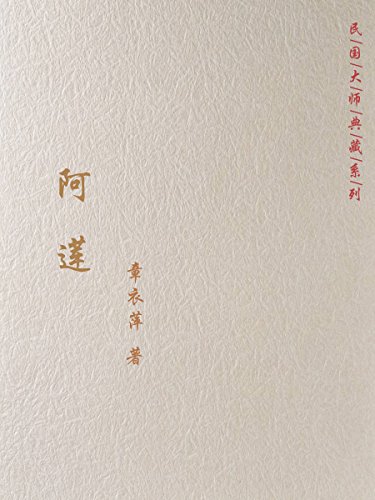 民国大师典藏系列
章衣萍 著
阿莲